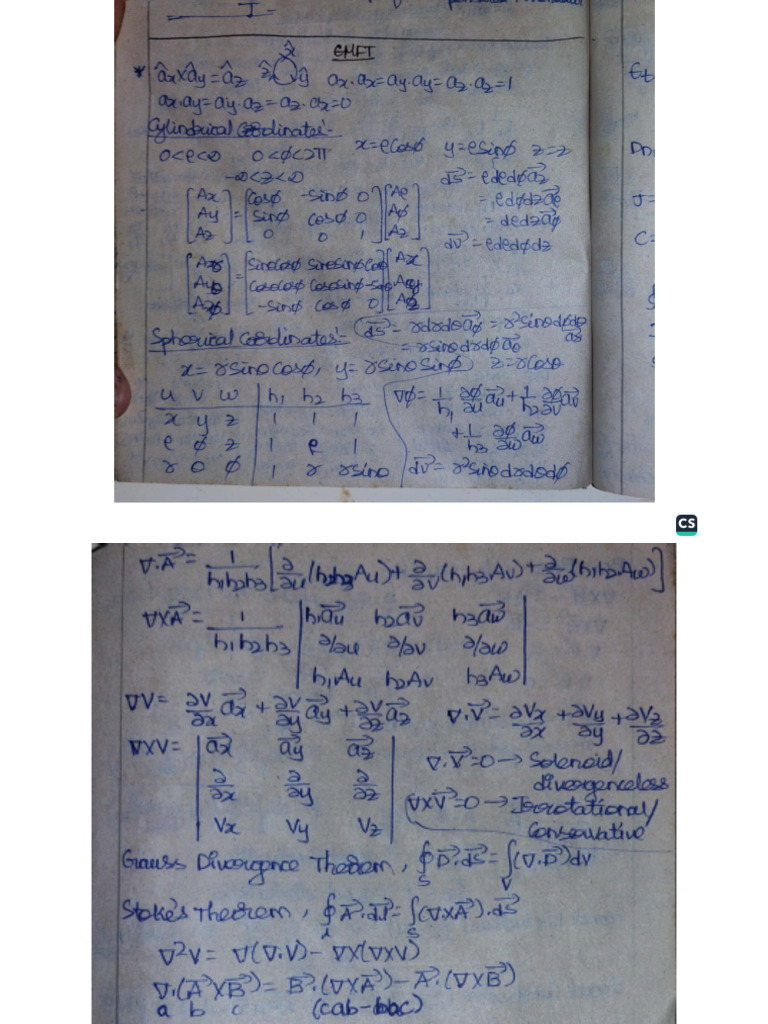 EMFT
* âx×ây=âz x̂ ŷ ẑ ax·ax=ay·ay=az·az=1
ax·ay=ay·az=az·ax=0
Cylindrical Coordinates:-
0<ρ<∞ 0<ϕ<2π x=ρcosϕ y=ρsinϕ z=z
-∞<z<∞ d⃗s=ρdρdϕa⃗z
[Ax Ay Az] = [cosϕ -sinϕ 0; sinϕ cosϕ 0; 0 0 1] [Aρ Aϕ Az]
=ρdϕdza⃗ρ
=dρdza⃗ϕ
d⃗v=ρdρdϕdz
[Ar Aθ Aϕ] = [sinθcosϕ sinθsinϕ cosθ; cosθcosϕ cosθsinϕ -sinθ; -sinϕ cosϕ 0] [Ax Ay Az]
Spherical Coordinates:- d⃗s=rdrdθa⃗ϕ=r²sinθdϕdθ a⃗r
=rsinθdrdϕa⃗θ
x=rsinθcosϕ, y=rsinθsinϕ z=rcosθ
u v w | h1 h2 h3
x y z | 1 1 1
ρ ϕ z | 1 ρ 1
r θ ϕ | 1 r rsinθ
∇ϕ=1/h1 ∂ϕ/∂u a⃗u+1/h2 ∂ϕ/∂v a⃗v
+1/h3 ∂ϕ/∂w a⃗w
d⃗v=r²sinθdrdθdϕ
CS
∇·A⃗=1/h1h2h3[∂/∂u(h2h3Au)+∂/∂v(h1h3Av)+∂/∂w(h1h2·Aw)]
∇×A⃗=1/h1h2h3 | h1a⃗u h2a⃗v h3a⃗w
∂/∂u ∂/∂v ∂/∂w
h1Au h2Av h3Aw |
∇V=∂V/∂x a⃗x+∂V/∂y a⃗y+∂V/∂z a⃗z ∇·V⃗=∂Vx/∂x+∂Vy/∂y+∂Vz/∂z
∇×V= | a⃗x a⃗y a⃗z
∂/∂x ∂/∂y ∂/∂z
Vx Vy Vz |
∇·V⃗=0→Solenoid/
divergenceless
∇×V⃗=0→Irrotational/
Conservative
Gauss Divergence Theorem, ∮s D⃗·d⃗s=∫v(∇·D⃗)dv
Stoke's Theorem, ∮l A⃗·d⃗l=∫s(∇×A⃗)·d⃗s
∇²V=∇(∇·V)-∇×(∇×V)
∇·(A⃗×B⃗)=B⃗·(∇×A⃗)-A⃗·(∇×B⃗)
a b c (cab-bac)